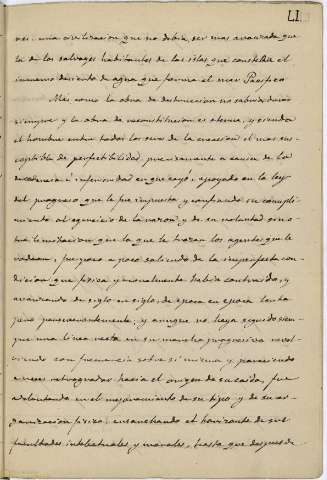 LI
nes, una civilizacion que no debia ser mas avanzada que
la de los salvages habitantes de las islas que constelan el
inmenso desierto de agua que forma el mar Pacifico
Mas como la obra de destruccion no sabria durar
siempre y la obra de reconstitucion es eterna, y siendo
el hombre entre todos los seres de la creacion el mas sus-
ceptible de perfectibilidad, precisamente a causa de la
decadencia é inferioridad en que cayó, apoyado en la ley
del progreso que le fue impuesta, y confiando su cumpli-
miento al egercicio de la razon y de su voluntad sin o-
tra limitacion que la que le trazan los agentes que le
rodean, fue poco a poco saliendo de la imperfecta con-
dicion que fisica y racionalmente habia contraido, y
avanzando de siglo en siglo, de epoca en epoca lenta
pero perseverantemente, y aunque no haya seguido siem-
pre una linea recta en su marcha progresiva revol-
viendo con frecuencia sobre si misma y pareciendo
a veces retrogradar hacia el origen de su caida, fue
adelantando en el mejoramiento de su tipo y de su or-
ganizacion fisica, ensanchando el horizonte de sus
facultades intelectuales y morales, hasta que despues de